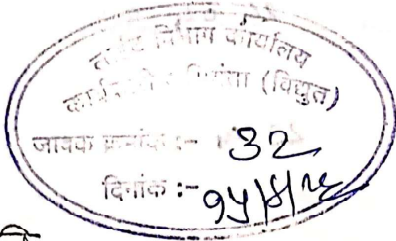 विभाग कार्यालय
कार्यकारी अभियंता (विद्युत)
जावक क्रमांक :- 32
दिनांक :-